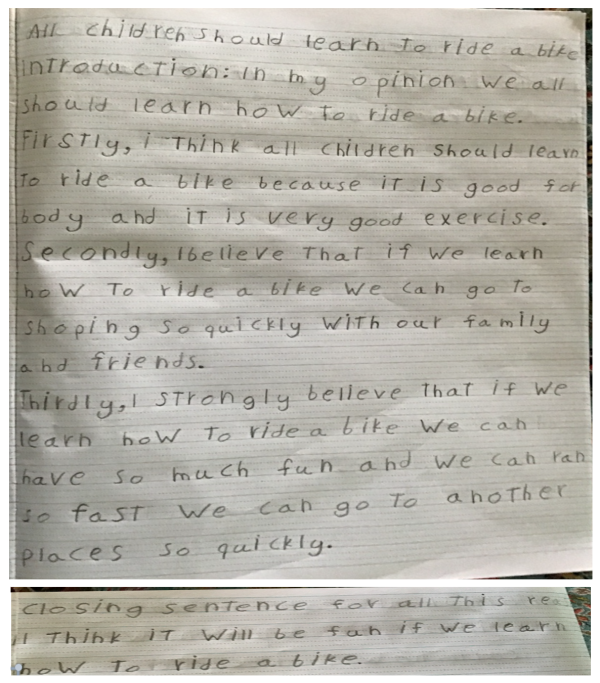 All children should learn to ride a bike
introduction: in my opinion we all
should learn how to ride a bike.
Firstly, i Think all children should learn
To ride a bike because iT is good for
body and iT is very good exercise.
Secondly, Ibelieve ThaT if we learn
how To ride a bike we can go To
shoping so quickly with our family
and friends.
Thirdly, I sTrongly believe that if we
learn how To ride a bike we can
have so much fun and we can ran
so fast we can go To another
places so quickly.
closing sentence for all This
I Think iT will be fun if we learn
how To ride a bike.